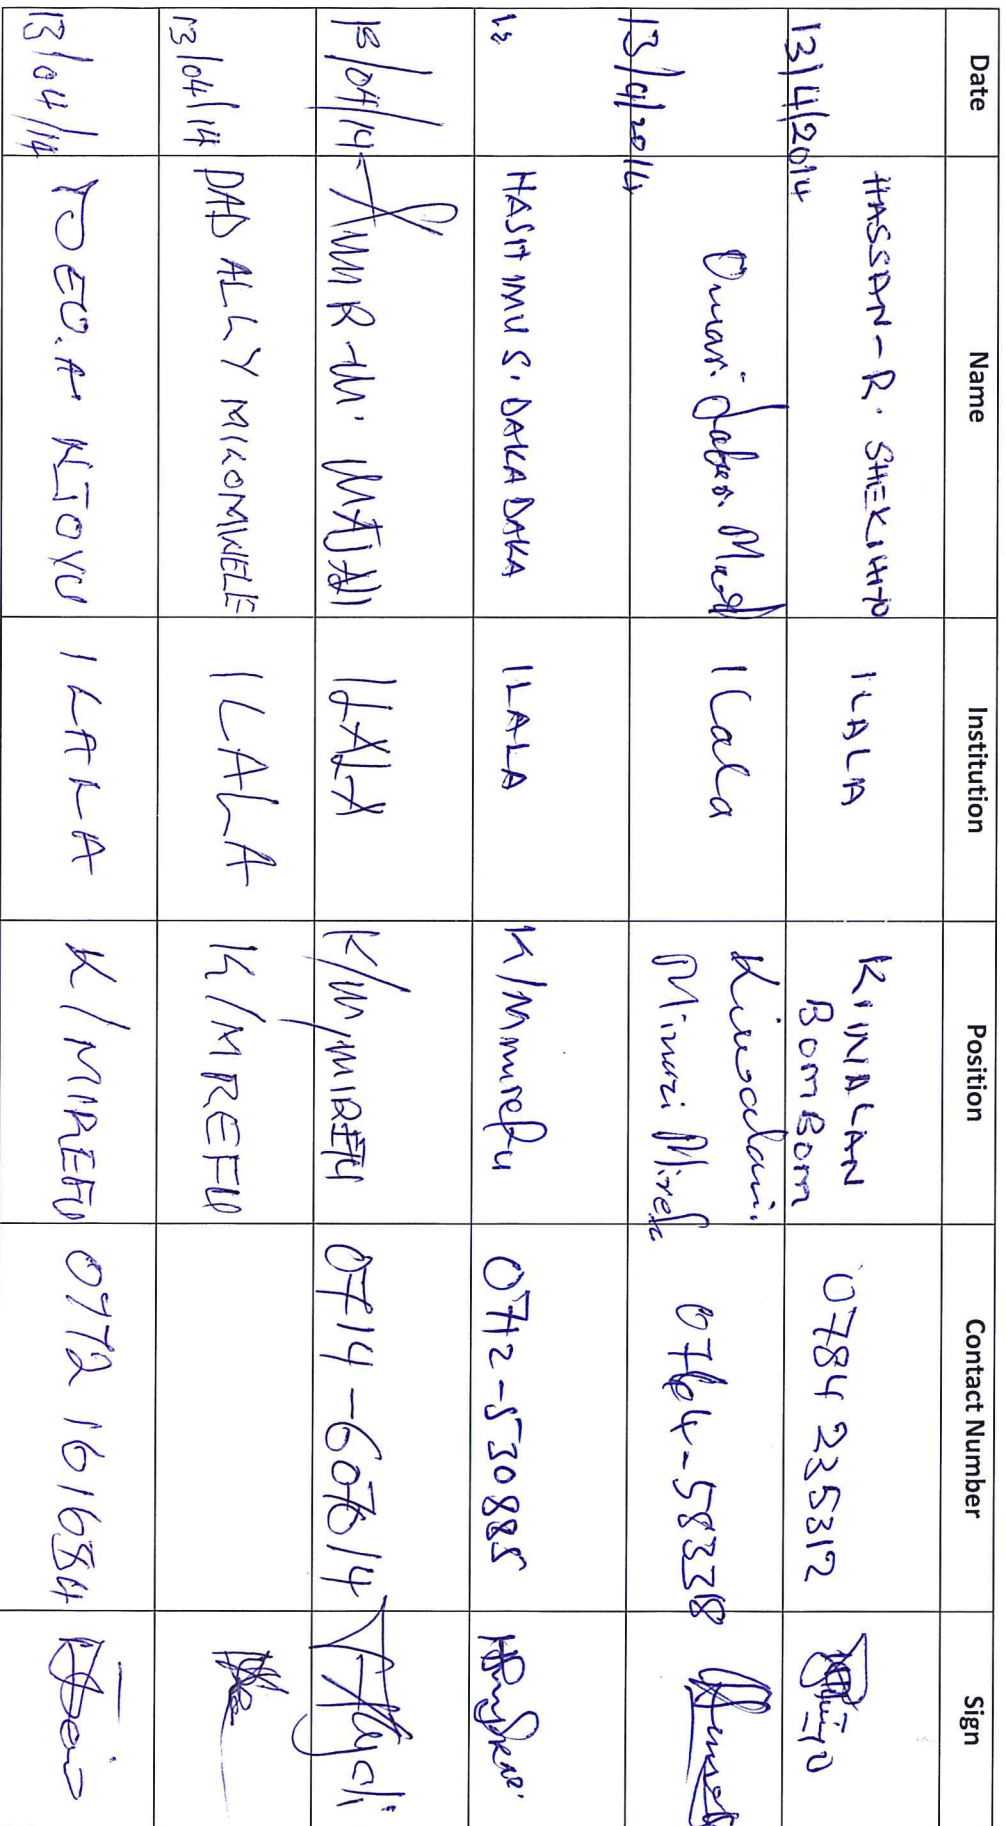 Date Name Institution Position Contact Number Sign
13/4/2014 HASSAN-R. SHEKIHIYO ILALA KINIALAN BOMBOM 0784 235312
13/4/2014 Omari Jabiri Ilala Kiwalani Minazi Miref 0764-583318
HASHIMU S. DAKADAKA ILALA K/Mmirefu 0712-530885
13/04/14 ILALA K/M/MIREFU 0714-607614
13/04/14 DAD ALLY MKOMWELE ILALA K/MREFU
13/04/14 YOEO.A. NJOVU ILALA K/MIREFU 0772 161684